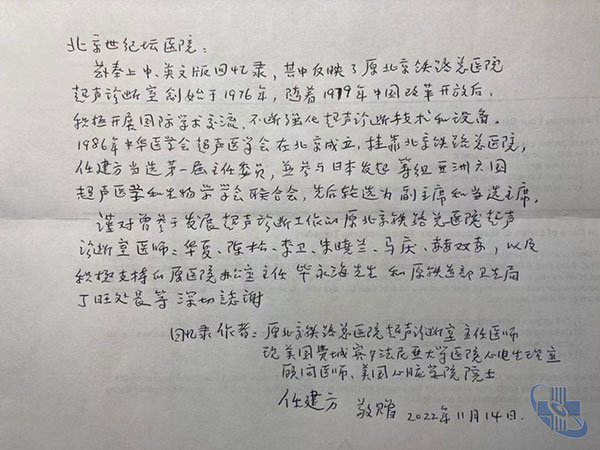 北京世纪坛医院：
兹奉上中、英文版回忆录，其中反映了原北京铁路总医院
超声诊断室创始于1976年，随着1979年中国改革开放后，
积极开展国际学术交流，不断强化超声诊断技术和设备。
1986年中华医学会超声医学会在北京成立，挂靠北京铁路总医院，
任建方当选第一届主任委员，并参与日本发起筹组亚洲六国
超声医学和生物学学会联合会，先后轮选为副主席和当选主席。
谨对曾参于发展超声诊断工作的原北京铁路总医院超声
诊断室医师：华夏、陈松、李卫、朱晓兰、马庆、赫双春，以及
积极支持的原医院办公室主任毕永海先生和原铁道部卫生局
丁旺处长等深切志谢
回忆录作者：原北京铁路总医院超声诊断室主任医师
现美国费城宾夕法尼亚大学医院心电生理室
顾问医师、美国心脏学院院士
任建方 敬赠 2022年11月14日.